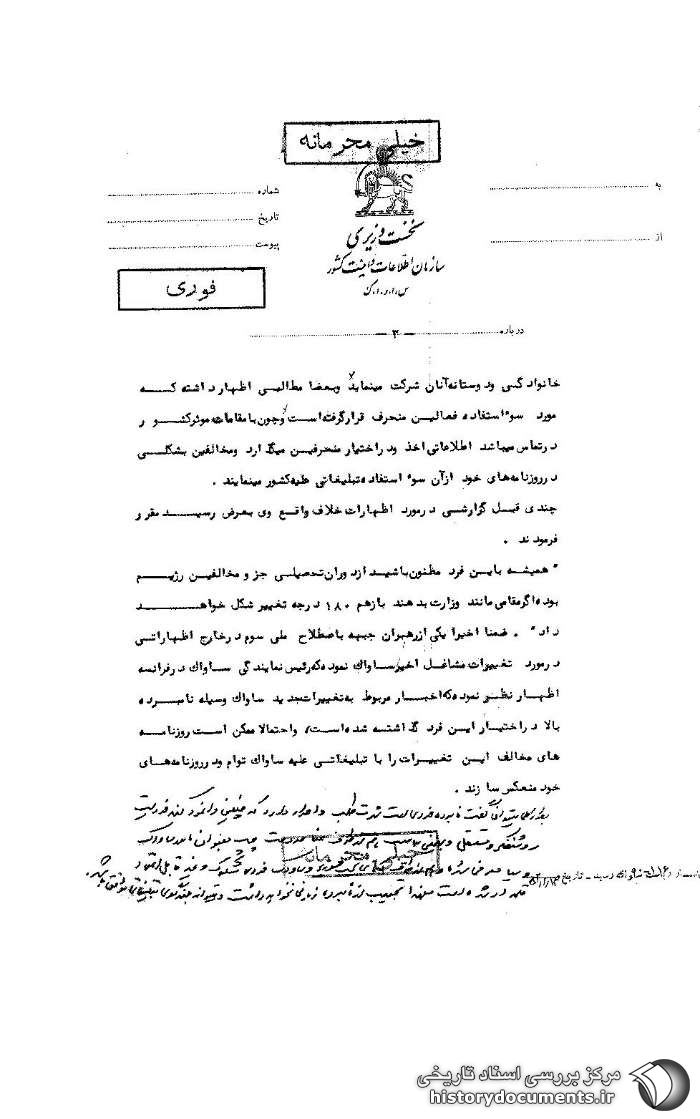 خیلی محرمانه
به
از
شماره
تاریخ
پیوست
نخست وزیری
سازمان اطلاعات و امنیت کشور
س.ا.و.ا.ک
فوری
درباره
- ۳ -
خانوادگی و دوستانه آنان شرکت مینماید و بعضا مطالبی اظهار داشته که
مورد سوء استفاده فعالین منحرف قرار گرفته است و چون با مقامات موثر کشور
در تماس میباشد اطلاعاتی اخذ و در اختیار منحرفین میگذارد و مخالفین بشکلی
در روزنامه های خود از آن سوء استفاده تبلیغاتی علیه کشور مینمایند .
چندی قبل گزارشی در مورد اظهارات خلاف واقع وی بعرض رسید مقرر
فرمودند .
" همیشه باین فرد مظنون باشید از دوران تحصیلی جز و مخالفین رژیم
بوده اگر مقامی مانند وزارت بدهند باز هم ۱۸۰ درجه تغییر شکل خواهد
داد " . ضمنا اخیرا یکی از رهبران جبهه باصطلاح ملی سوم در خارج اظهاراتی
در مورد تغییرات مشاغل اخیر ساواک نموده که رئیس نمایندگی ساواک در فرانسه
اظهار نظر نموده که اخبار مربوط به تغییرات جدید ساواک وسیله نامبرده
بالا در اختیار این فرد گذاشته شده است، و احتمالا ممکن است روزنامه
های مخالف این تغییرات را با تبلیغاتی علیه ساواک توام و در روزنامه های
خود منعکس سازند .
گفت نامبرده فردی است شهرت طلب و اصرار دارد که چنین وانمود کند فردیست
روشنفکر و مستقل
خیلی محرمانه
مرکز بررسی اسناد تاریخی
historydocuments.ir